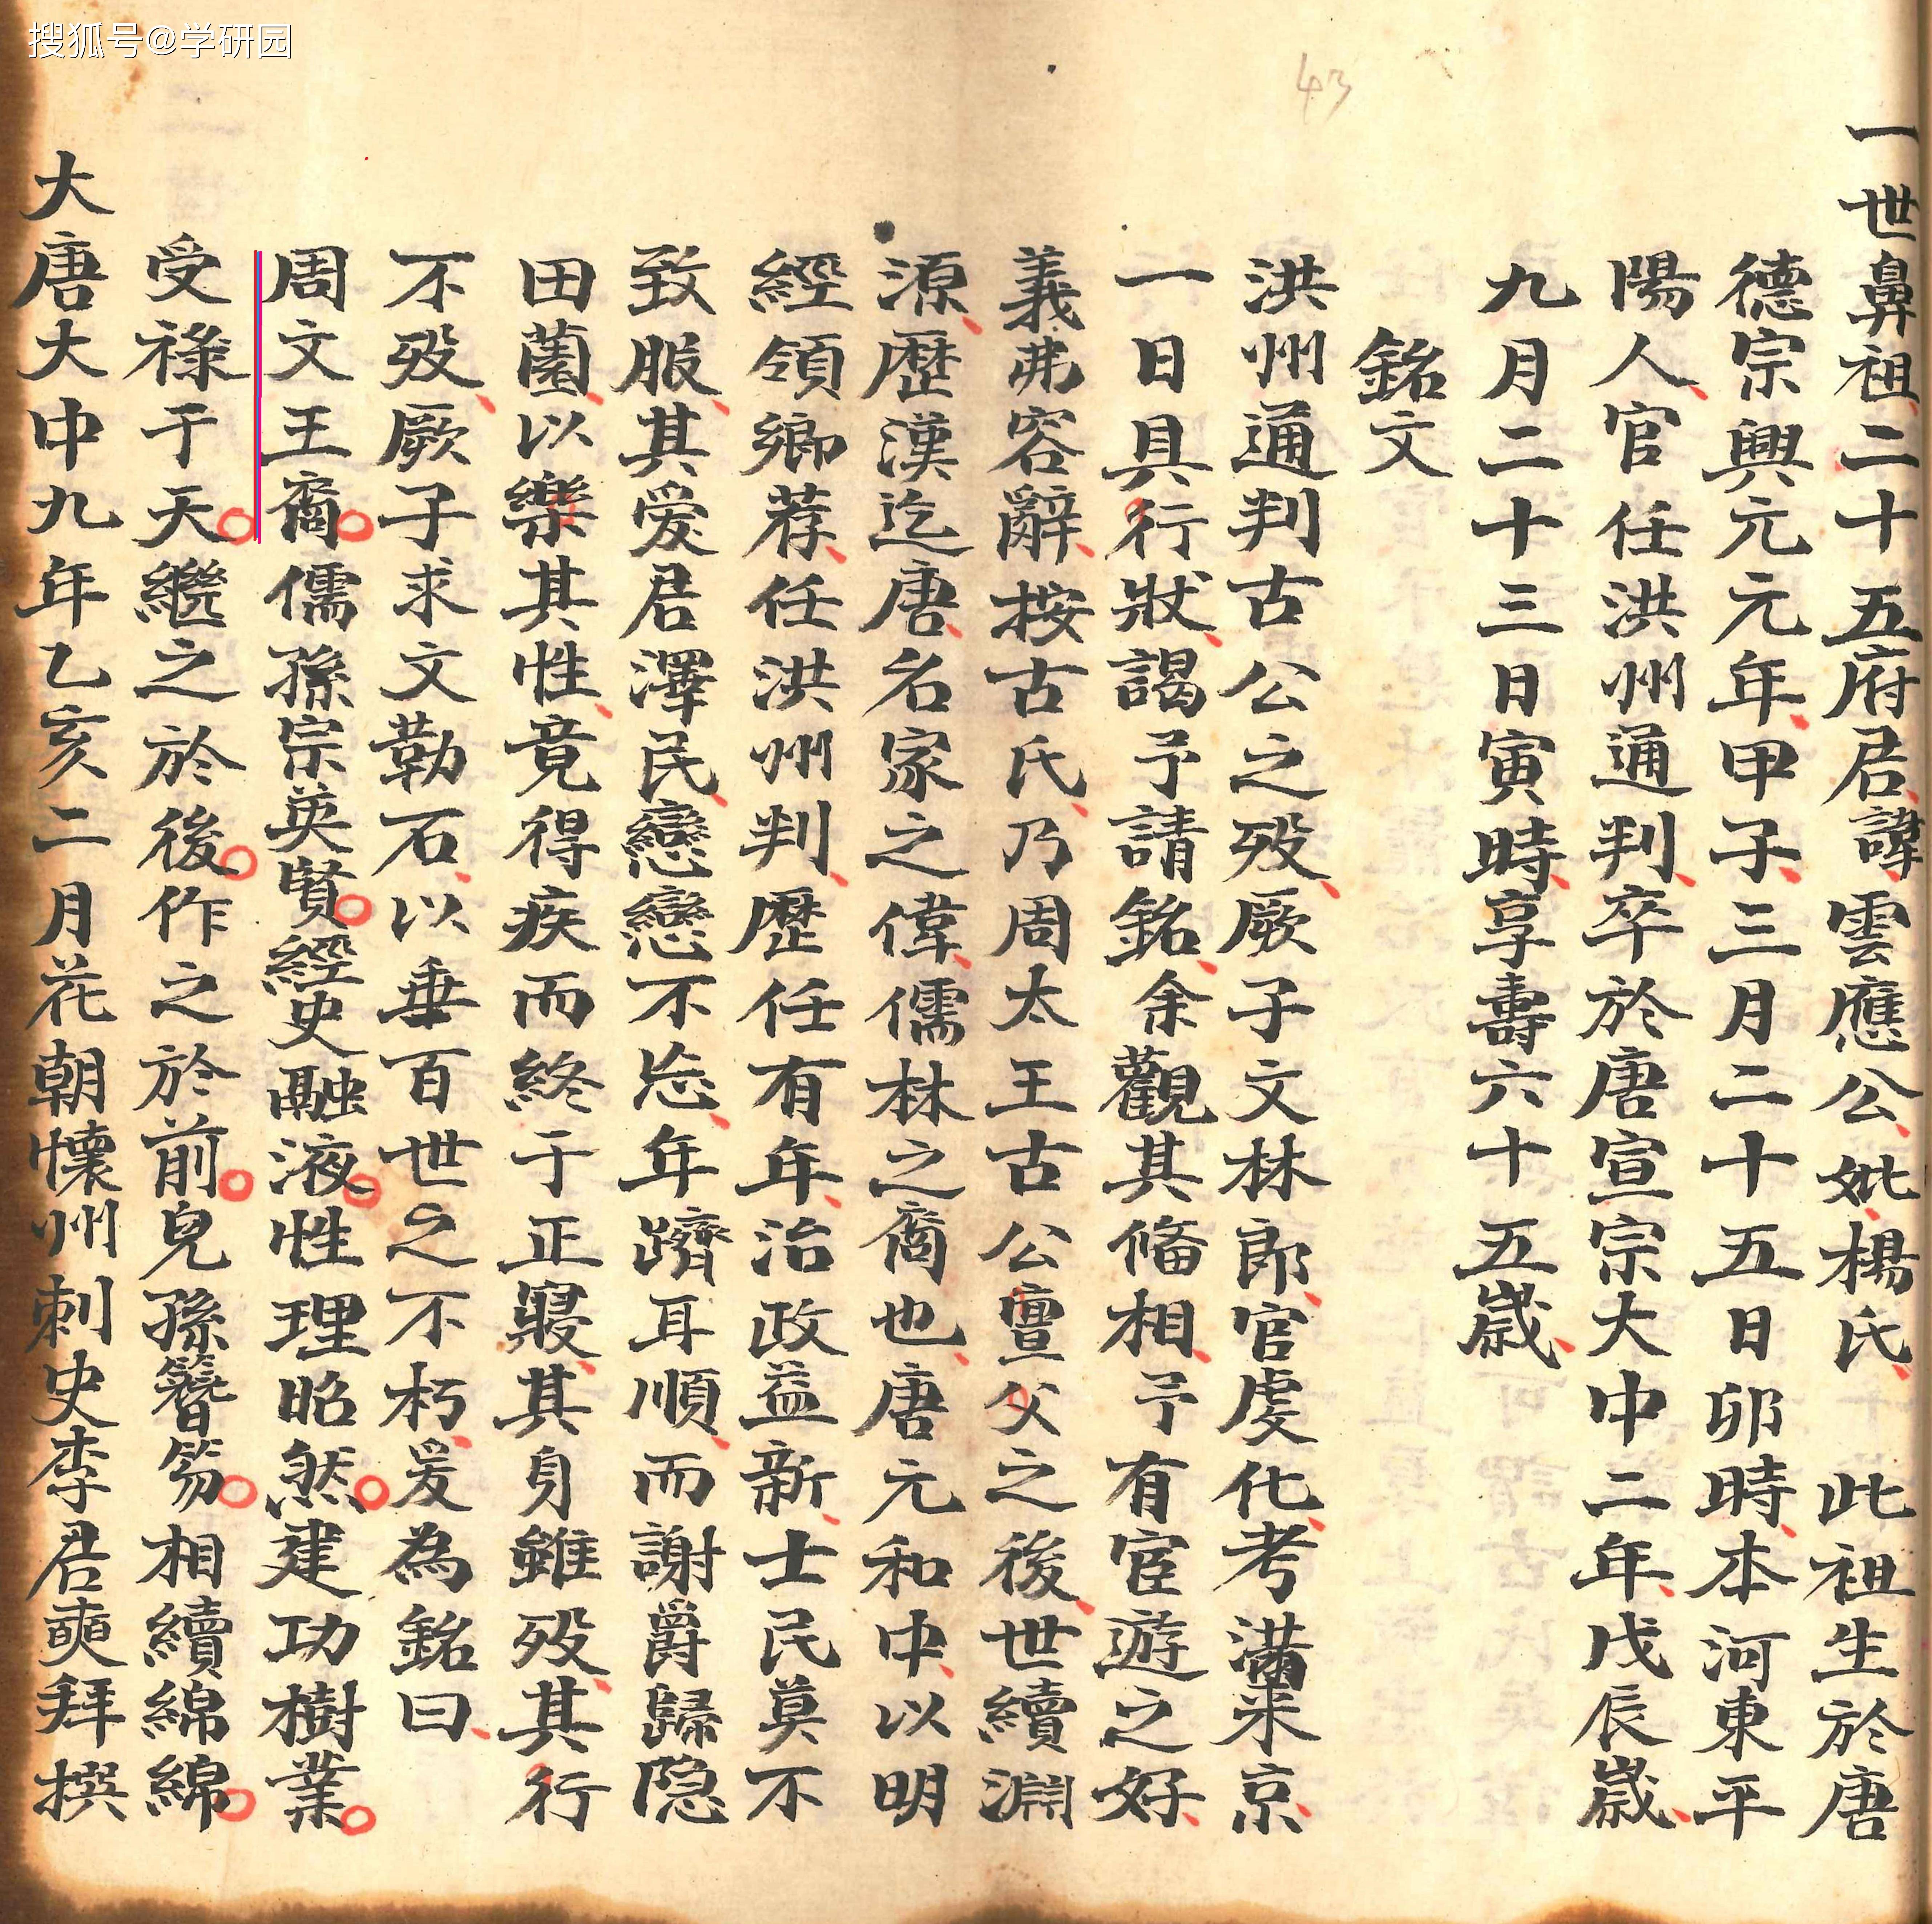 搜狐号@学研园
43
一世鼻祖二十五府君諱雲應公妣楊氏 此祖生於唐
德宗興元元年甲子三月二十五日卯時本河東平
陽人官任洪州通判卒於唐宣宗大中二年戊辰嵗
九月二十三日寅時享壽六十五嵗
銘文
洪州通判古公之殁厥子文林郎官虔化考滿来京
一日具行狀謁予請銘余觀其俻相予有宦遊之好
義弗容辭按古氏乃周太王古公亶父之後世續淵
源歷漢迄唐名家之偉儒林之裔也唐元和中以明
經領鄉荐任洪州判歷任有年治政益新士民莫不
致服其爱君澤民戀戀不忘年躋耳順而謝爵歸隐
田薗以樂其性竟得疾而終于正寢其身雖殁其行
不殁厥子求文勒石以垂百世之不朽爰為銘曰
周文王裔儒孫宗英賢經史融液性理昭然建功樹業
受祿于天繼之於後作之於前兒孫簪笏相續綿綿
大唐大中九年乙亥二月花朝懷州刺史李君奭拜撰